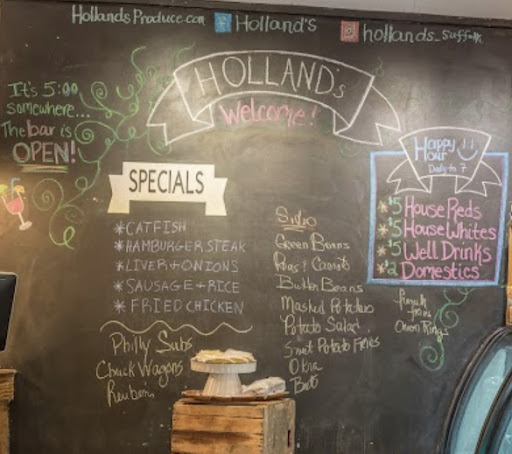 HollandsProduce.com
Holland's
hollands_suffolk
HOLLAND's
Welcome!
It's 5:00
somewhere...
The bar is
OPEN!
SPECIALS
*CATFISH
*HAMBURGER STEAK
*LIVER + ONIONS
*SAUSAGE + RICE
*FRIED CHICKEN
Philly Subs
Chuck Wagons
Reuben
Green Beans
Peas & Carrots
Butter Beans
Mashed Potatoes
Potato Salad
Sweet Potato Fries
Okra
Happy
Hour
Daily to 7
*$5 House Reds
*$5 House Whites
*$5 Well Drinks
*$2 Domestics
French
fries
Onion Rings